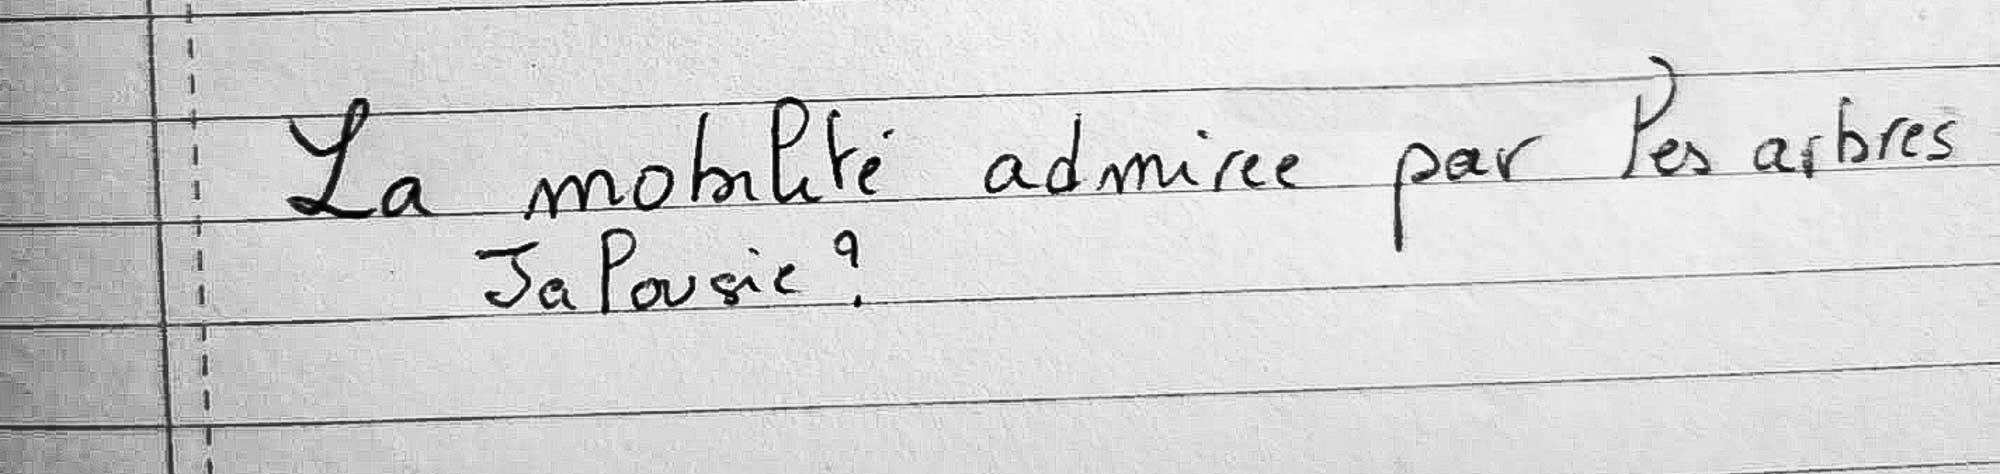 La mobilité admiree par les arbres
Jalousie ?